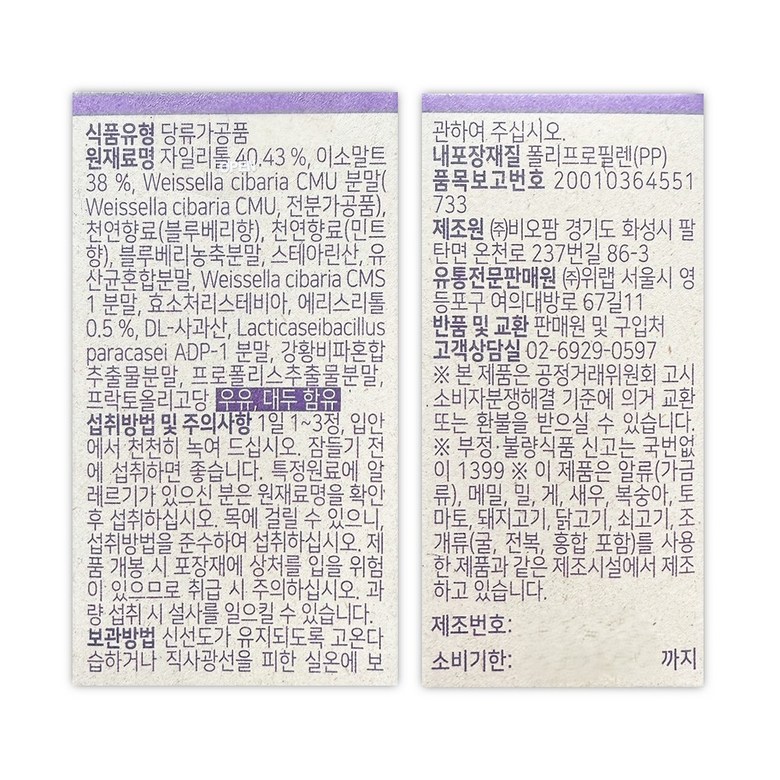 식품유형 당류가공품
원재료명 자일리톨 40.43 %, 이소말트
38 %, Weissella cibaria CMU 분말(
Weissella cibaria CMU, 전분가공품),
천연향료(블루베리향), 천연향료(민트
향), 블루베리농축분말, 스테아린산, 유
산균혼합분말, Weissella cibaria CMS
1 분말, 효소처리스테비아, 에리스리톨
0.5 %, DL-사과산, Lacticaseibacillus
paracasei ADP-1 분말, 강황비파혼합
추출물분말, 프로폴리스추출물분말,
프락토올리고당 우유, 대두 함유
섭취방법 및 주의사항 1일 1~3정, 입안
에서 천천히 녹여 드십시오. 잠들기 전
에 섭취하면 좋습니다. 특정원료에 알
레르기가 있으신 분은 원재료명을 확인
후 섭취하십시오. 목에 걸릴 수 있으니,
섭취방법을 준수하여 섭취하십시오. 제
품 개봉 시 포장재에 상처를 입을 위험
이 있으므로 취급 시 주의하십시오. 과
량 섭취 시 설사를 일으킬 수 있습니다.
보관방법 신선도가 유지되도록 고온다
습하거나 직사광선을 피한 실온에 보
관하여 주십시오.
내포장재질 폴리프로필렌(PP)
품목보고번호 20010364551
733
제조원 ㈜비오팜 경기도 화성시 팔
탄면 온천로 237번길 86-3
유통전문판매원 ㈜위랩 서울시 영
등포구 여의대방로 67길11
반품 및 교환 판매원 및 구입처
고객상담실 02-6929-0597
※ 본 제품은 공정거래위원회 고시
소비자분쟁해결 기준에 의거 교환
또는 환불을 받으실 수 있습니다.
※ 부정·불량식품 신고는 국번없
이 1399 ※ 이 제품은 알류(가금
류), 메밀, 밀, 게, 새우, 복숭아, 토
마토, 돼지고기, 닭고기, 쇠고기, 조
개류(굴, 전복, 홍합 포함)를 사용
한 제품과 같은 제조시설에서 제조
하고 있습니다.
제조번호:
소비기한: 까지